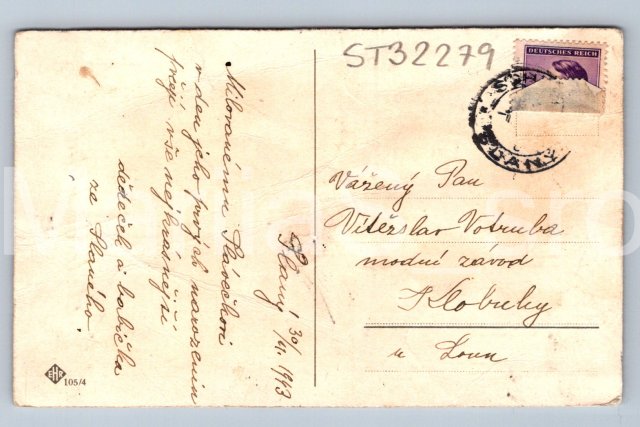 ST32279
DEUTSCHES REICH
SLANÝ
Slaný 30/VI. 1943
Milovanému Slávečkovi
v den jeho prvých narozenin
přeje vše nejkrásnější
dědeček a babička
ze Slaného.
Vážený Pan
Vítězslav Votruba
modní závod
Klobuky
u Loun
EHR
105/4